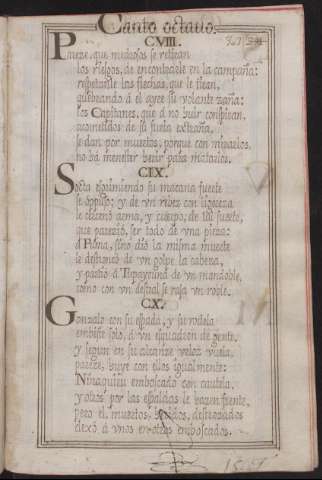 Canto octauo.
CVIII.
Pareze, que medrosos se retiran
los riesgos, de encontrarle en la campaña:
respetanle las flechas, que le tiran,
quebrando á el ayre su volante zaña:
los Capitanes, que á no huir conspiran,
acometidos de su furia extraña,
se dan por muertos, porque con mirarlos
no ha menester herir para matarlos.
CIX.
Socta esgrimiendo su macana fuerte
se oppuso; y de vn rebez con ligereza
le terció arma, y cuerpo; de tal suerte,
que parezió, ser todo de vna pieza:
á Rona, sino dió la misma muerte
le destroncó de vn golpe la cabeza,
y partió á Tupaymina de vn mandoble,
como con vn destral se raja vn roble.
CX.
Gonzalo con su espada, y su rodela
embiste solo, á vn esquadron de gente,
y segun en su alcanze veloz vuela,
pareze, huye con ellos igualmente:
Ninaguieu emboscado con cautela,
y otros por las espaldas le hazen frente,
pero él muertos, heridos, destrozados
dexó á vnos en otros emboscados.